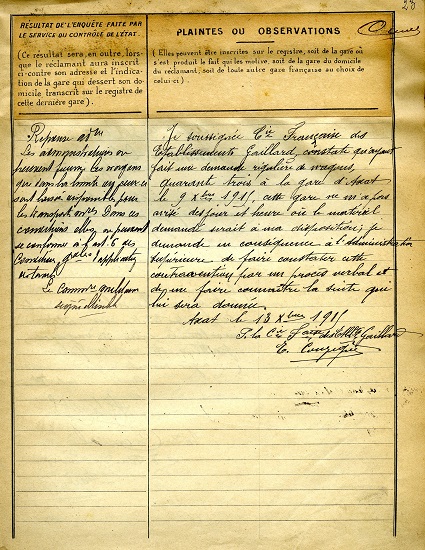 28
RÉSULTAT DE L'ENQUÊTE FAITE PAR
LE SERVICE DU CONTRÔLE DE L'ÉTAT.
(Ce résultat sera, en outre, lors-
que le réclamant aura inscrit
ci-contre son adresse et l'indica-
tion de la gare qui dessert son do-
micile transcrit sur le registre de
cette dernière gare).
PLAINTES OU OBSERVATIONS
(Elles peuvent être inscrites sur le registre, soit de la gare où
s'est produit le fait qui les motive, soit de la gare du domicile
du réclamant, soit de toute autre gare française au choix de
celui-ci.)
Réponse
Les administrations ne
peuvent fournir les wagons
que dans la limite
sont
les transports Dans ces
conditions elles ne peuvent
se conformer à
Je soussignée Cie Française des
Établissements Gaillard, constate qu'ayant
fait une demande régulière de wagons,
quarante trois à la gare d'Axat
le 9 Xbre 1915, cette gare ne m'a pas
avisé des jour et heure où le matériel
demandé serait à ma disposition; je
demande en conséquence à l'Administration
Supérieure de faire constater cette
contravention par un procès verbal et
de me faire connaître la suite qui
lui sera donnée
Axat le 13 Xbre 1915
P. la Cie des Gaillard
E.